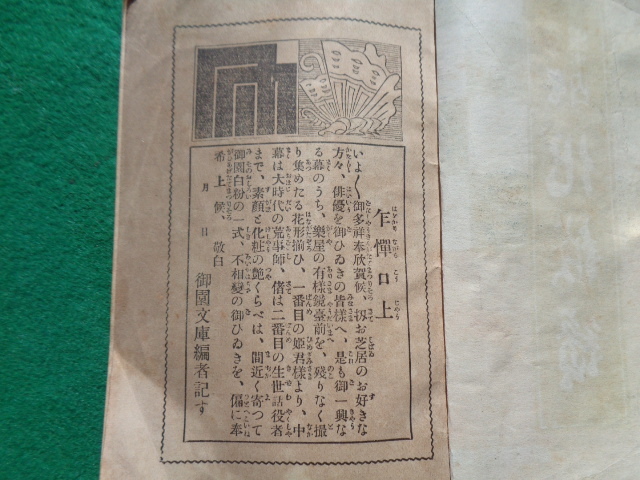 乍憚口上
いよ〳〵御多祥奉欣賀候、扨お芝居のお好きな
方々、俳優を御ひゐきの皆様へ、是も御一興な
る幕のうち、樂屋の有樣鏡臺前を、殘りなく撮
り集めたる花形揃ひ、一番目の姫君樣より、中
幕は大時代の荒事師、偖は二番目の生世話役者
まで、素顏と化粧の艶くらべは、間近く寄つて
御園白粉の一式、不相變の御ひゐきを、偏に奉
希上候、
月 日 敬白
御園文庫編者記す